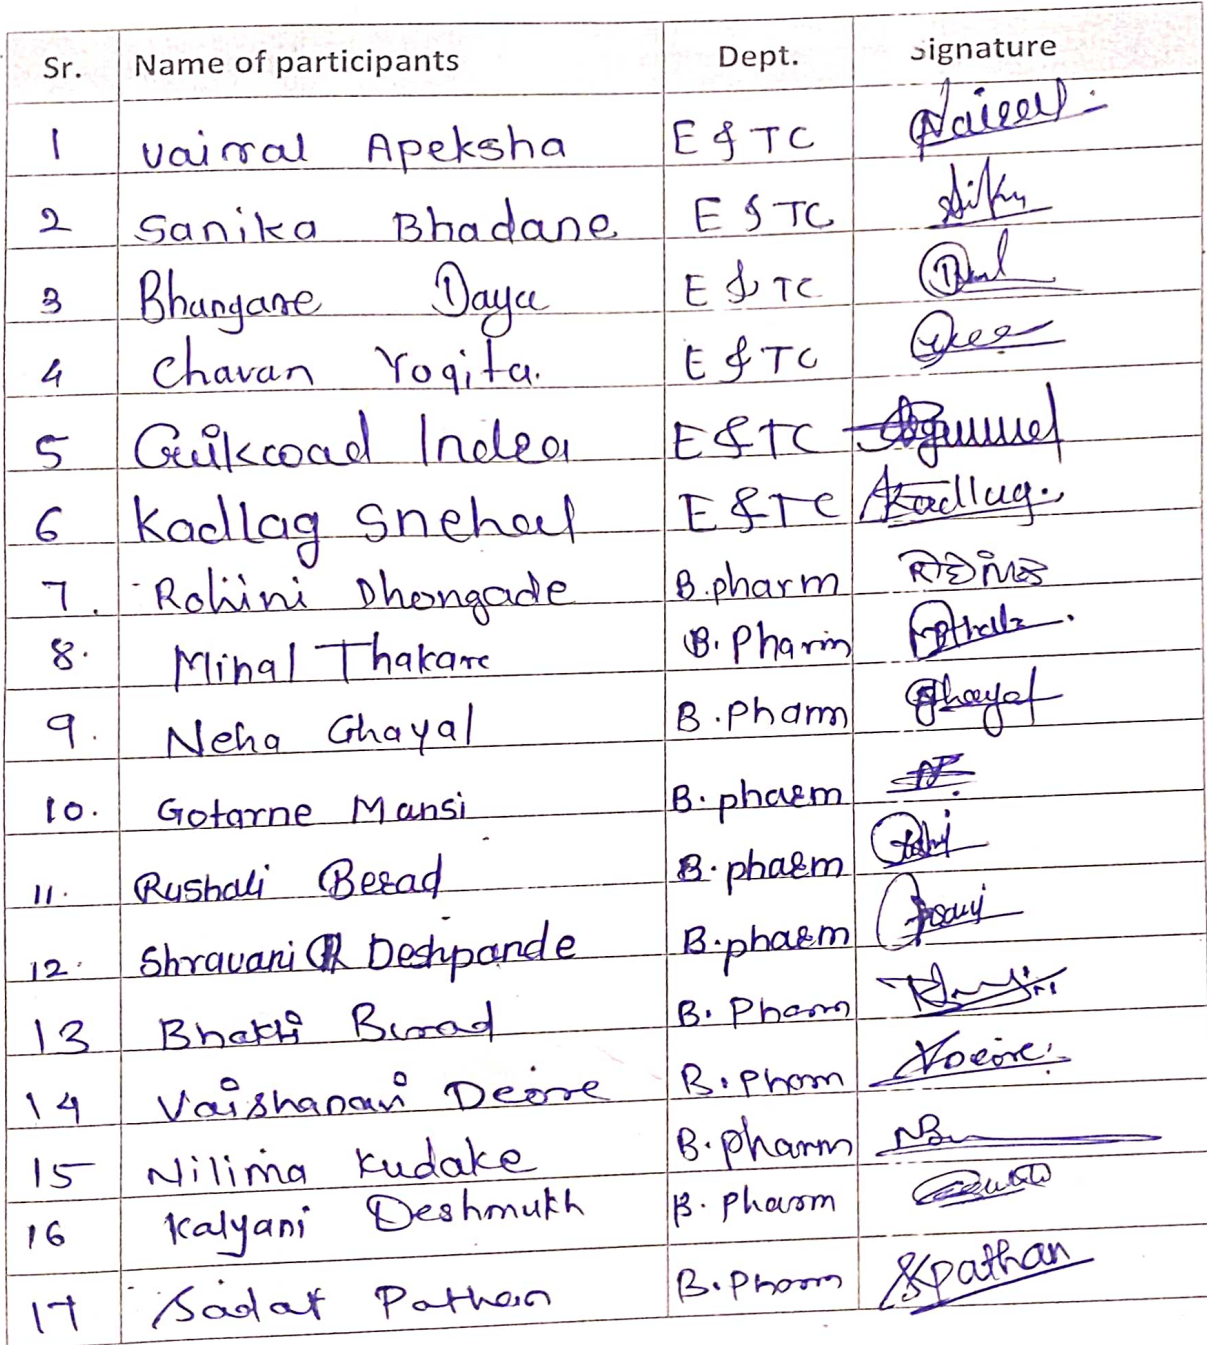 Sr. Name of participants Dept. Signature
1 vairal Apeksha E & TC
2 Sanika Bhadane E & TC
3 Bhangare Daya E & TC
4 Chavan Yogita. E & TC
5 E & TC
6 Kadlag Snehal E & TC Kadlag.
7. Rohini Dhongade B.pharm
8. Minal Thakare B. Pharm
9. Neha Ghayal B.Pharm Ghayal
10. Gotarne Mansi B. pharm
11. Rushali Berad B. pharm
12. Shravani R Deshpande B.pharm
13 Bhakti Burad B. Pharm
14 Vaishanavi Deore B. Pharm
15 Nilima Kudake B. pharm
16 Kalyani Deshmukh B. Pharm
17 Sadaf Pathan B. Pharm Spathan